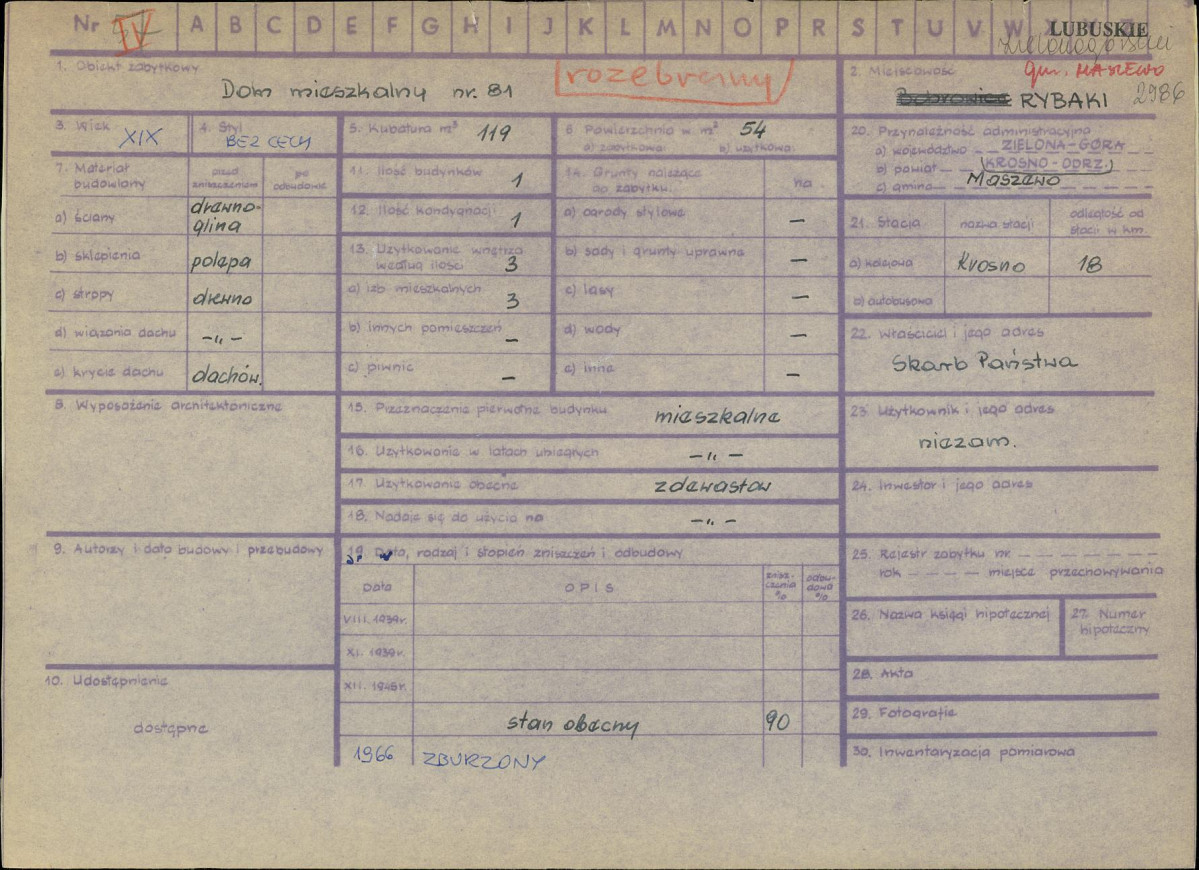 Nr IV A B C D E F G H I J K L M N O P R S T U V W X LUBUSKIE
Zielonogórskie
1. Obiekt zabytkowy
Dom mieszkalny nr. 81
rozebrany
2. Miejscowość
gm. MASZEWO
Bobrowice RYBAKI 2986
3. Wiek
XIX
4. Styl
BEZ CECH
5. Kubatura m³ 119
6. Powierzchnia w m² 54
a) zabytkowa b) użytkowa
7. Materiał budowlany
przed zniszczeniem
po odbudowie
a) ściany drewno-glina
b) sklepienia polepa
c) stropy drewno
d) wiązania dachu —„—
e) krycie dachu dachów.
8. Wyposażenie architektoniczne
9. Autorzy i data budowy i przebudowy
10. Udostępnienie
dostępne
11. Ilość budynków 1
12. Ilość kondygnacji 1
13. Użytkowanie wnętrza według ilości 3
a) izb mieszkalnych 3
b) innych pomieszczeń —
c) piwnic —
14. Grunty należące do zabytku. na
a) ogrody stylowe —
b) sady i grunty uprawne —
c) lasy —
d) wody —
e) inne —
15. Przeznaczenie pierwotne budynku mieszkalne
16. Użytkowanie w latach ubiegłych —„—
17. Użytkowanie obecne zdewastow
18. Nadaje się do użycia na —„—
19. Data, rodzaj i stopień zniszczeń i odbudowy
Data OPIS znisz-czenia % odbu-dowa %
VIII. 1939r.
XI. 1939r.
XII. 1945r.
stan obecny 90
1966 ZBURZONY
20. Przynależność administracyjna
a) województwo ZIELONA-GÓRA
b) powiat (KROSNO-ODRZ.)
c) gmina Maszewo
21. Stacja nazwa stacji odległość od stacji w km.
a) kolejowa Krosno 18
b) autobusowa
22. Właściciel i jego adres
Skarb Państwa
23 Użytkownik i jego adres
niezam.
24. Inwestor i jego adres
25. Rejestr zabytku nr.
rok — — — — miejsce przechowywania
26. Nazwa księgi hipotecznej
27. Numer hipoteczny
28. Akta
29. Fotografie
30. Inwentaryzacja pomiarowa